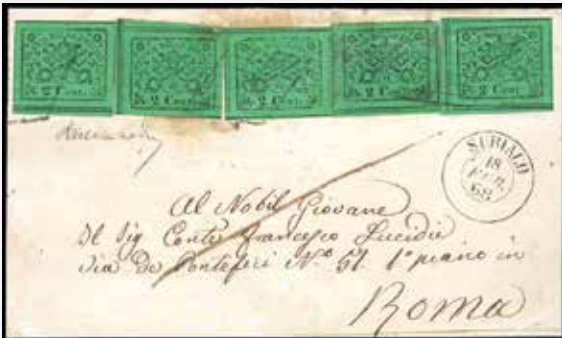 2 Cent. 2 Cent. 2 Cent. 2 Cent. 2 Cent.
SURIANO
18
FEB.
68
Al Nobil Giovane
Il Sig Conte Francesco Lucidi
Via De Pontefici N.º 51. 1º piano in
Roma